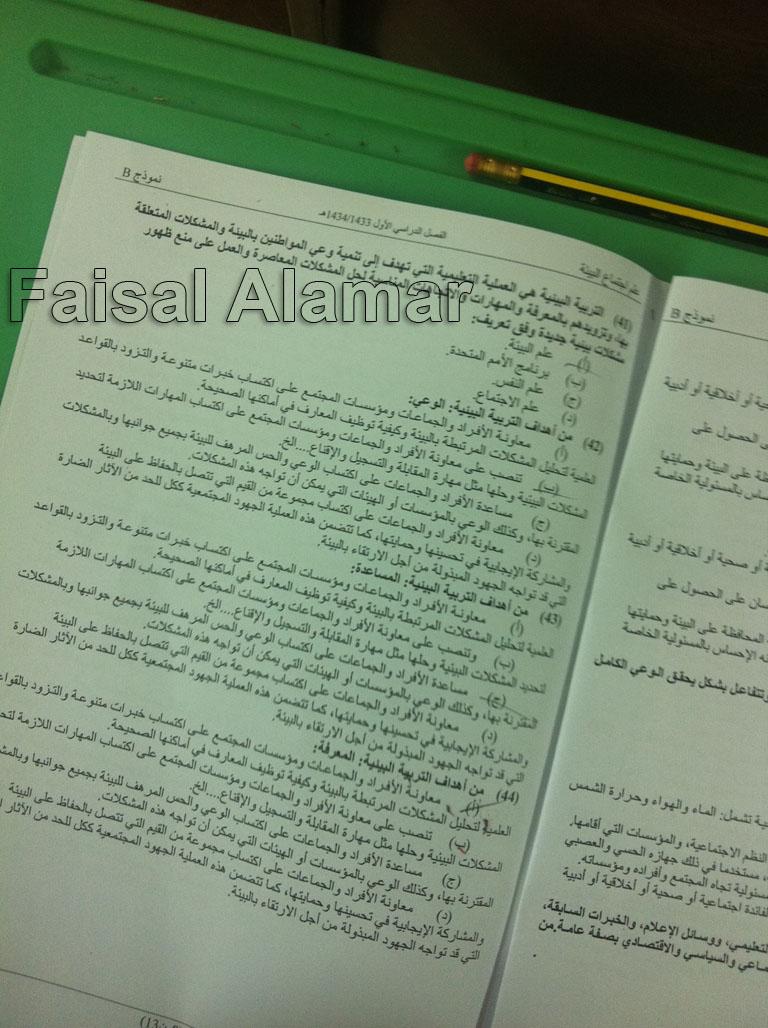 علم اجتماع البيئة
الفصل الدراسي الأول 1434/1433هـ
نموذج B
(41) التربية البيئية هي العملية التعليمية التي تهدف إلى تنمية وعي المواطنين بالبيئة والمشكلات المتعلقة
بها، وتزويدهم بالمعرفة والمهارات والاتجاهات المناسبة لحل المشكلات المعاصرة والعمل على منع ظهور
مشكلات بيئية جديدة وفق تعريف:
(أ) علم البيئة.
(ب) برنامج الأمم المتحدة.
(ج) علم النفس.
(د) علم الاجتماع.
(42) من أهداف التربية البيئية: الوعي:
(أ) معاونة الأفراد والجماعات ومؤسسات المجتمع على اكتساب خبرات متنوعة والتزود بالقواعد
العلمية لتحليل المشكلات المرتبطة بالبيئة وكيفية توظيف المعارف في أماكنها الصحيحة.
(ب) تنصب على معاونة الأفراد والجماعات ومؤسسات المجتمع على اكتساب المهارات اللازمة لتحديد
المشكلات البيئية وحلها مثل مهارة المقابلة والتسجيل والإقناع....الخ.
(ج) مساعدة الأفراد والجماعات على اكتساب الوعي والحس المرهف للبيئة بجميع جوانبها وبالمشكلات
المقترنة بها، وكذلك الوعي بالمؤسسات أو الهيئات التي يمكن أن تواجه هذه المشكلات.
(د) معاونة الأفراد والجماعات على اكتساب مجموعة من القيم التي تتصل بالحفاظ على البيئة
والمشاركة الإيجابية في تحسينها وحمايتها، كما تتضمن هذه العملية الجهود المجتمعية ككل للحد من الآثار الضارة
التي قد تواجه الجهود المبذولة من أجل الارتقاء بالبيئة.
(43) من أهداف التربية البيئية: المساعدة:
(أ) معاونة الأفراد والجماعات ومؤسسات المجتمع على اكتساب خبرات متنوعة والتزود بالقواعد
العلمية لتحليل المشكلات المرتبطة بالبيئة وكيفية توظيف المعارف في أماكنها الصحيحة.
(ب) وتنصب على معاونة الأفراد والجماعات ومؤسسات المجتمع على اكتساب المهارات اللازمة
لتحديد المشكلات البيئية وحلها مثل مهارة المقابلة والتسجيل والإقناع....الخ.
(ج) مساعدة الأفراد والجماعات على اكتساب الوعي والحس المرهف للبيئة بجميع جوانبها وبالمشكلات
المقترنة بها، وكذلك الوعي بالمؤسسات أو الهيئات التي يمكن أن تواجه هذه المشكلات.
(د) معاونة الأفراد والجماعات على اكتساب مجموعة من القيم التي تتصل بالحفاظ على البيئة
والمشاركة الإيجابية في تحسينها وحمايتها، كما تتضمن هذه العملية الجهود المجتمعية ككل للحد من الآثار الضارة
التي قد تواجه الجهود المبذولة من أجل الارتقاء بالبيئة.
(44) من أهداف التربية البيئية: المعرفة:
(أ) معاونة الأفراد والجماعات ومؤسسات المجتمع على اكتساب خبرات متنوعة والتزود بالقواعد
العلمية لتحليل المشكلات المرتبطة بالبيئة وكيفية توظيف المعارف في أماكنها الصحيحة.
(ب) تنصب على معاونة الأفراد والجماعات ومؤسسات المجتمع على اكتساب المهارات اللازمة
المشكلات البيئية وحلها مثل مهارة المقابلة والتسجيل والإقناع....الخ.
(ج) مساعدة الأفراد والجماعات على اكتساب الوعي والحس المرهف للبيئة بجميع جوانبها
المقترنة بها، وكذلك الوعي بالمؤسسات أو الهيئات التي يمكن أن تواجه هذه المشكلات.
(د) معاونة الأفراد والجماعات على اكتساب مجموعة من القيم التي تتصل بالحفاظ على البيئة
والمشاركة الإيجابية في تحسينها وحمايتها، كما تتضمن هذه العملية الجهود المجتمعية ككل للحد من الآثار
التي قد تواجه الجهود المبذولة من أجل الارتقاء بالبيئة.
Faisal Alamar
نموذج B
أو أخلاقية أو أدبية
الحصول على
على البيئة وحمايتها
بالمسئولية الخاصة
أو صحية أو أخلاقية أو أدبية
على الحصول على
المحافظة على البيئة وحمايتها
الإحساس بالمسئولية الخاصة
وتتفاعل بشكل يحقق الوعي الكامل
تشمل: الماء والهواء وحرارة الشمس
النظم الاجتماعية، والمؤسسات التي أقامها.
مستخدما في ذلك جهازه الحسي والعصبي
تجاه المجتمع وأفراده ومؤسساته.
اجتماعية أو صحية أو أخلاقية أو أدبية
ووسائل الإعلام، والخبرات السابقة،
والسياسي والاقتصادي بصفة عامة.من